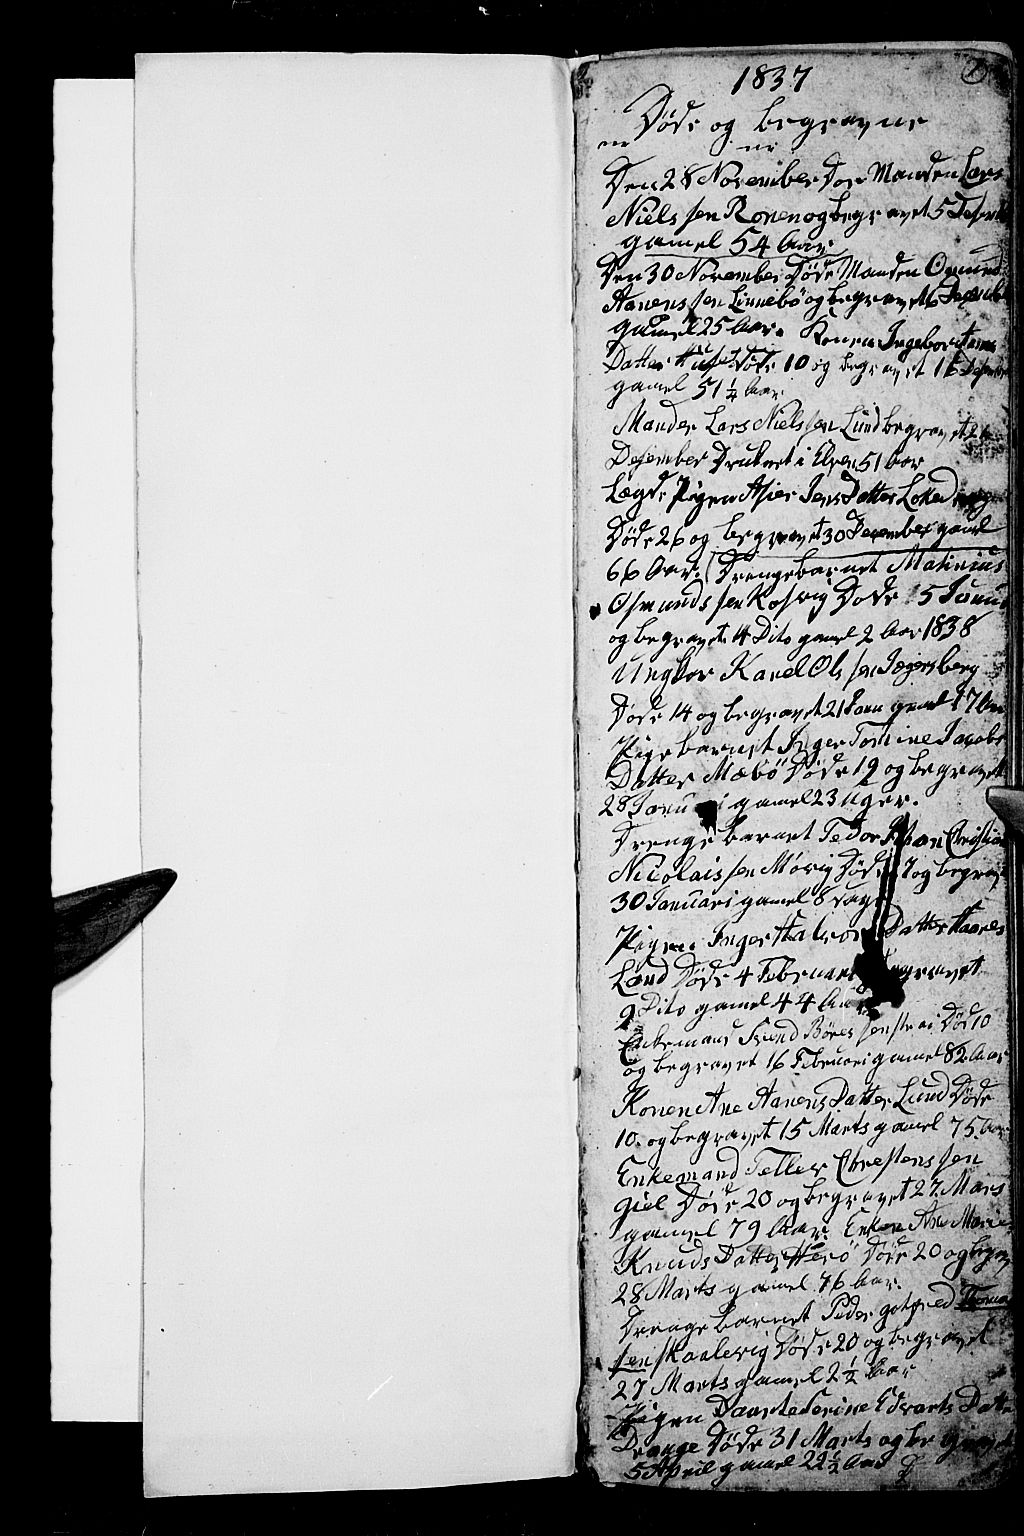 1837
Døde og begravne
er er
Den 28 November Døe Manden Lars
Niels sen Ronen og begravet 5 Desemb
gamel 54 Aar
Den 30 November Døde Manden Osmund
Aanens sen Linnebø og begravet 6 Desember
gamel 25 Aar. Konen Ingebor
Datter Døde 10 og begravet 16 Desember
gamel 51 1/4 Aar
Manden Lars Niels sen Lund begravet
Desember Druknet i Elven 51 Aar
Lægds Pigen Asier Jens Datter
Døde 26 og begravet 30 Desember gamel
66 Aar. Drengebarnet Matinius
Osmunds sen Kosvig Døde 5 Januar
og begravet 14 Dito gamel 2 Aar 1838
Ungkar Karel Ols sen Jegersberg
Døde 14 og begravet 21 Janu gamel 17 Aar
Pige barnet Inger Tomine Jacobs
Datter Mæbø Døde 19 og begravet
28 Januari gamel 23 Uger.
Drenge barnet Tedor Johan Christian
Nicolais sen Møvig Døde og begravet
30 Januari gamel 8 dage
Pigen Inger Halvor Datter Haares
Land Døde 4 Februari begravet
9 Dito gamel 44 Aar
Enkemand Svend Børes sen Død 10
og begravet 16 Februari gamel 82 Aar
Konen Ane Aanens Datter Lund Døde
10. og begravet 15 Marts gamel 75 Aar
Enkemand Teller Chrestens sen
Giel Døde 20 og begravet 27 Mars
gamel 79 Aar. Enken Ane Marie
Knuds Datter Herø Døde 20 og begra
28 Marts gamel 76 Aar.
Drenge barnet Peder gotfred Thomas
sen Skaalevig Døde 20 og begravet
27 Marts gamel 2 1/2 Aar
Pigen Daarte Serine Edvarts Datter
Drange Døde 31 Marts og begravet
5 April gamel 22 1/2 Aar